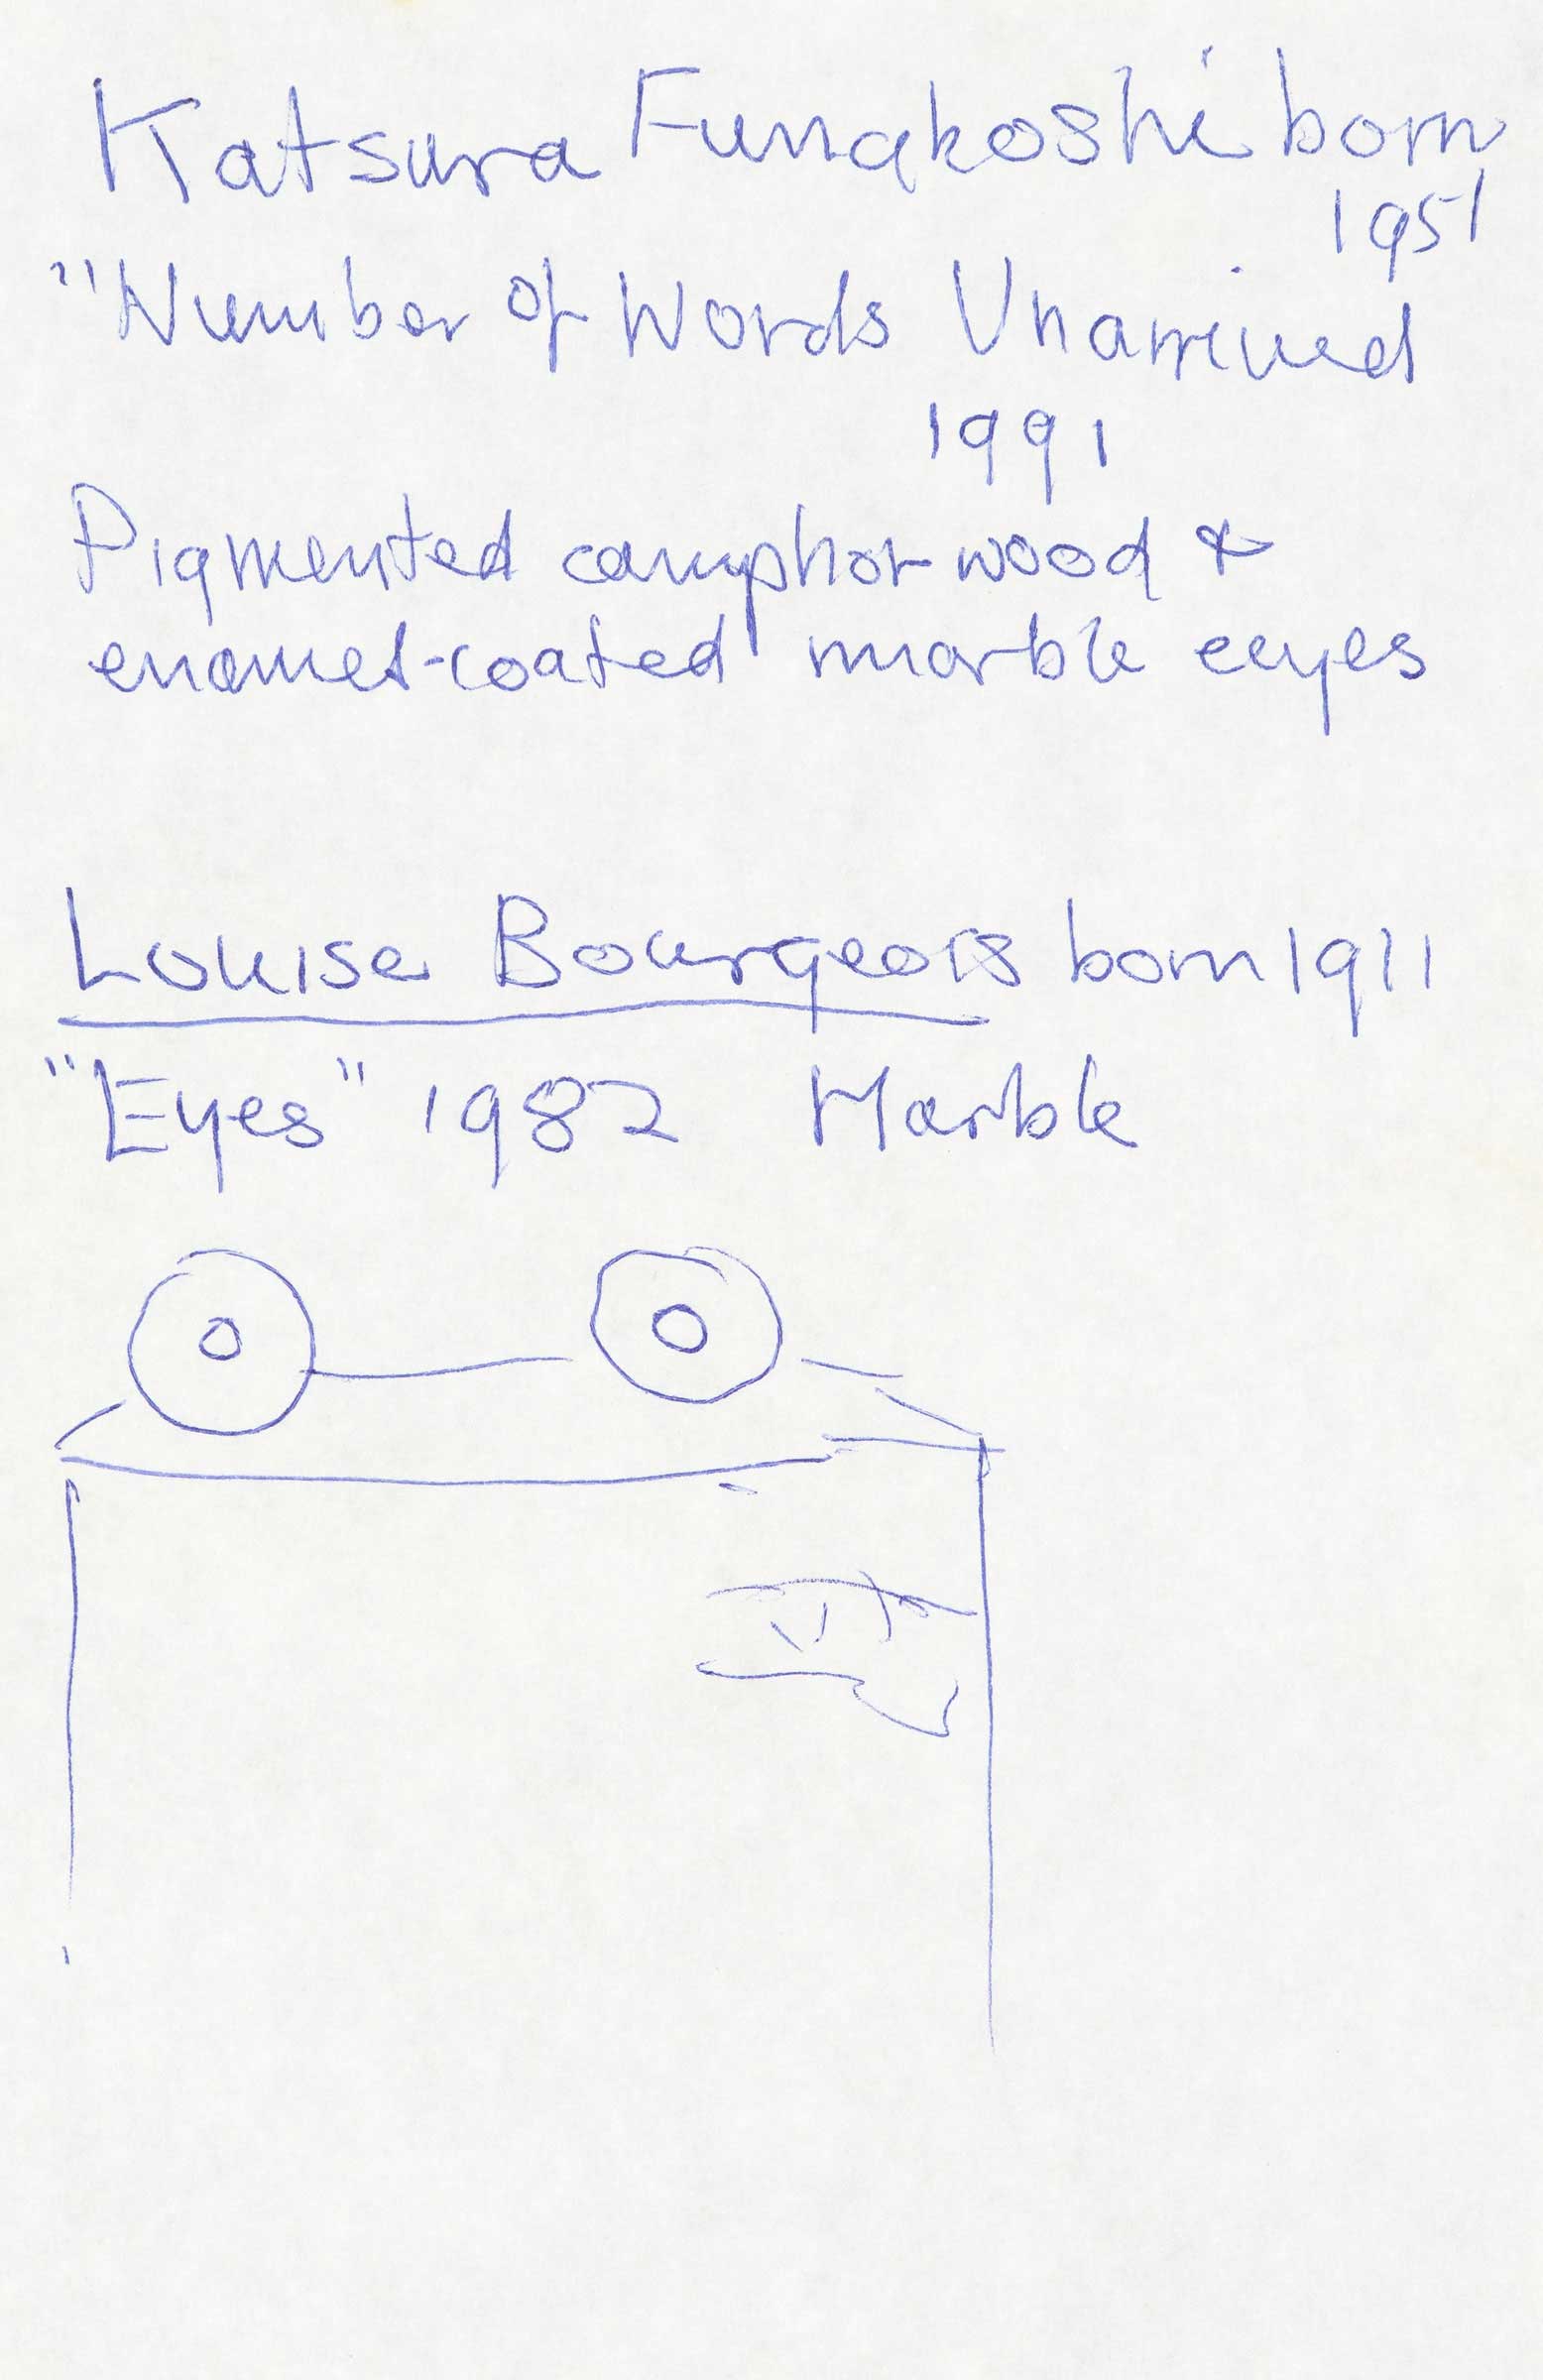 Katsura Funakoshi born
1951
"Number of Words Unarrived
1991
Pigmented camphor wood &
enamel-coated marble eeyes
Louise Bourgeois born 1911
"Eyes" 1982 Marble